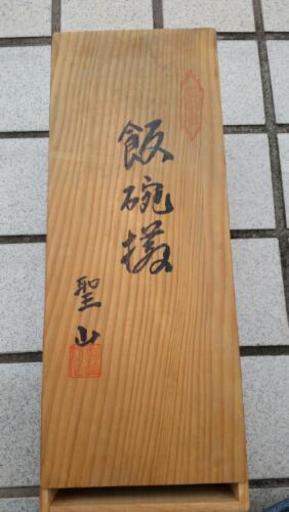 飯碗揃
聖山